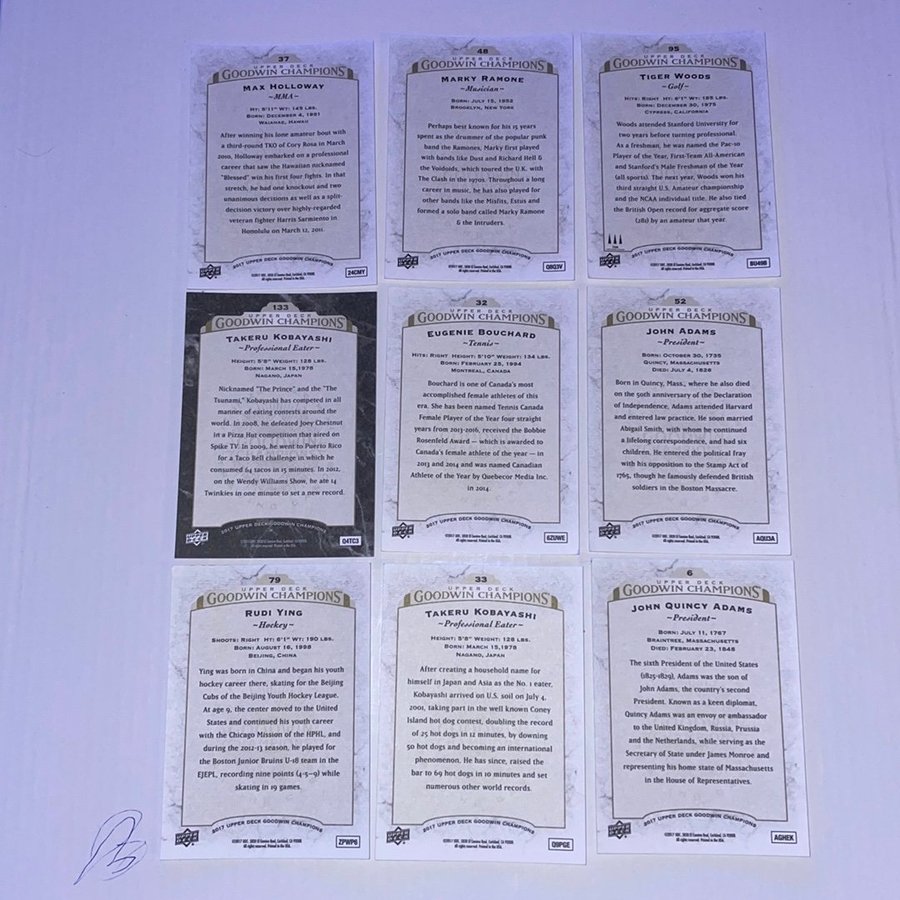 37
UPPER DECK
GOODWIN CHAMPIONS
MAX HOLLOWAY
~MMA~
HT: 5'11" WT: 145 LBS.
BORN: DECEMBER 4, 1991
WAIANAE, HAWAII
After winning his lone amateur bout with
a third-round TKO of Cory Rosa in March
2010, Holloway embarked on a professional
career that saw the Hawaiian nicknamed
"Blessed" win his first four fights. In that
stretch, he had one knockout and two
unanimous decisions as well as a split-
decision victory over highly-regarded
veteran fighter Harris Sarmiento in
Honolulu on March 12, 2011.
2017 UPPER DECK GOODWIN CHAMPIONS
24CMY
48
UPPER DECK
GOODWIN CHAMPIONS
MARKY RAMONE
~Musician~
BORN: JULY 15, 1952
BROOKLYN, NEW YORK
Perhaps best known for his 15 years
spent as the drummer of the popular punk
band the Ramones, Marky first played
with bands like Dust and Richard Hell &
the Voidoids, which toured the U.K. with
The Clash in the 1970s. Throughout a long
career in music, he has also played for
other bands like the Misfits, Estus and
formed a solo band called Marky Ramone
& the Intruders.
2017 UPPER DECK GOODWIN CHAMPIONS
Q8Q3V
95
UPPER DECK
GOODWIN CHAMPIONS
TIGER WOODS
~Golf~
HITS: RIGHT HT: 6'1" WT: 185 LBS.
BORN: DECEMBER 30, 1975
CYPRESS, CALIFORNIA
Woods attended Stanford University for
two years before turning professional.
As a freshman, he was named the Pac-10
Player of the Year, First-Team All-American
and Stanford's Male Freshman of the Year
(all sports). The next year, Woods won his
third straight U.S. Amateur championship
and the NCAA individual title. He also tied
the British Open record for aggregate score
(281) by an amateur that year.
2017 UPPER DECK GOODWIN CHAMPIONS
8U49B
133
UPPER DECK
GOODWIN CHAMPIONS
TAKERU KOBAYASHI
~Professional Eater~
HEIGHT: 5'8" WEIGHT: 128 LBS.
BORN: MARCH 15,1978
NAGANO, JAPAN
Nicknamed "The Prince" and the "The
Tsunami," Kobayashi has competed in all
manner of eating contests around the
world. In 2008, he defeated Joey Chestnut
in a Pizza Hut competition that aired on
Spike TV. In 2009, he went to Puerto Rico
for a Taco Bell challenge in which he
consumed 64 tacos in 15 minutes. In 2012,
on the Wendy Williams Show, he ate 14
Twinkies in one minute to set a new record.
2017 UPPER DECK GOODWIN CHAMPIONS
Q4TC3
32
UPPER DECK
GOODWIN CHAMPIONS
EUGENIE BOUCHARD
~Tennis~
HITS: RIGHT HEIGHT: 5'10" WEIGHT: 134 LBS.
BORN: FEBRUARY 25, 1994
MONTREAL, CANADA
Bouchard is one of Canada's most
accomplished female athletes of this
era. She has been named Tennis Canada
Female Player of the Year four straight
years from 2013-2016, received the Bobbie
Rosenfeld Award — which is awarded to
Canada's female athlete of the year — in
2013 and 2014 and was named Canadian
Athlete of the Year by Quebecor Media Inc.
in 2014.
2017 UPPER DECK GOODWIN CHAMPIONS
6ZUWE
52
UPPER DECK
GOODWIN CHAMPIONS
JOHN ADAMS
~President~
BORN: OCTOBER 30, 1735
QUINCY, MASSACHUSETTS
DIED: JULY 4, 1826
Born in Quincy, Mass., where he also died
on the 50th anniversary of the Declaration
of Independence, Adams attended Harvard
and entered law practice. He soon married
Abigail Smith, with whom he continued
a lifelong correspondence, and had six
children. He entered the political fray
with his opposition to the Stamp Act of
1765, though he famously defended British
soldiers in the Boston Massacre.
2017 UPPER DECK GOODWIN CHAMPIONS
AQU3A
79
UPPER DECK
GOODWIN CHAMPIONS
RUDI YING
~Hockey~
SHOOTS: RIGHT HT: 6'1" WT: 190 LBS.
BORN: AUGUST 16, 1998
BEIJING, CHINA
Ying was born in China and began his youth
hockey career there, skating for the Beijing
Cubs of the Beijing Youth Hockey League.
At age 9, the center moved to the United
States and continued his youth career
with the Chicago Mission of the HPHL, and
during the 2012-13 season, he played for
the Boston Junior Bruins U-18 team in the
EJEPL, recording nine points (4-5—9) while
skating in 19 games.
2017 UPPER DECK GOODWIN CHAMPIONS
ZPWP6
33
UPPER DECK
GOODWIN CHAMPIONS
TAKERU KOBAYASHI
~Professional Eater~
HEIGHT: 5'8" WEIGHT: 128 LBS.
BORN: MARCH 15,1978
NAGANO, JAPAN
After creating a household name for
himself in Japan and Asia as the No. 1 eater,
Kobayashi arrived on U.S. soil on July 4,
2001, taking part in the well known Coney
Island hot dog contest, doubling the record
of 25 hot dogs in 12 minutes, by downing
50 hot dogs and becoming an international
phenomenon. He has since, raised the
bar to 69 hot dogs in 10 minutes and set
numerous other world records.
2017 UPPER DECK GOODWIN CHAMPIONS
Q9PGE
6
UPPER DECK
GOODWIN CHAMPIONS
JOHN QUINCY ADAMS
~President~
BORN: JULY 11, 1767
BRAINTREE, MASSACHUSETTS
DIED: FEBRUARY 23, 1848
The sixth President of the United States
(1825-1829), Adams was the son of
John Adams, the country's second
President. Known as a keen diplomat,
Quincy Adams was an envoy or ambassador
to the United Kingdom, Russia, Prussia
and the Netherlands, while serving as the
Secretary of State under James Monroe and
representing his home state of Massachusetts
in the House of Representatives.
2017 UPPER DECK GOODWIN CHAMPIONS
AGHEK